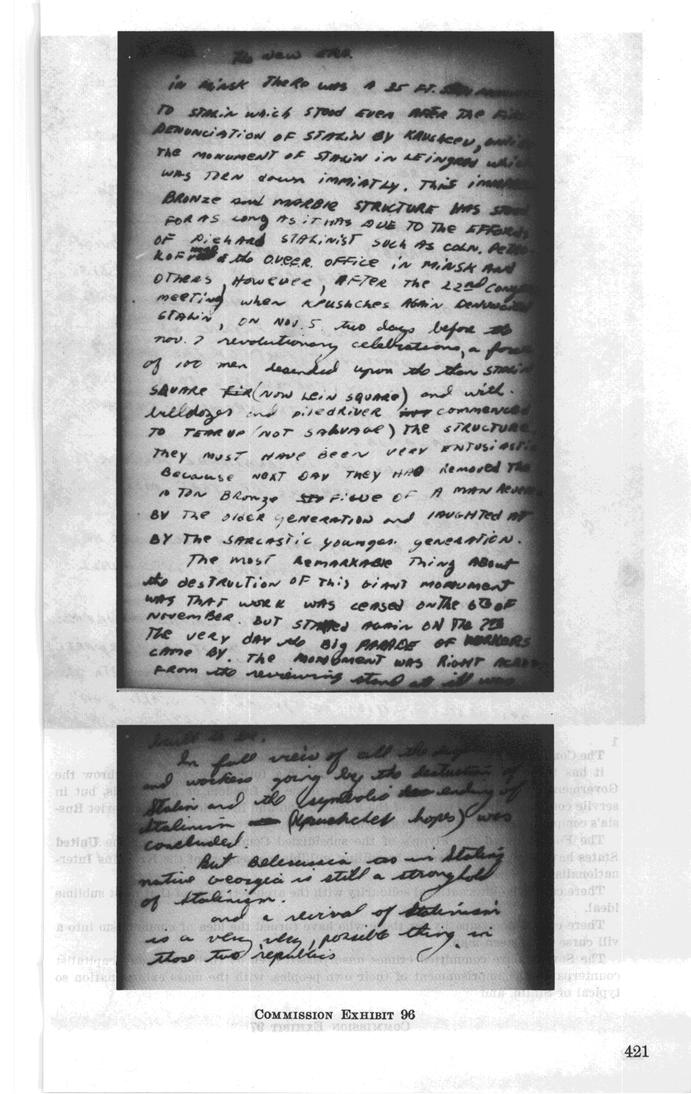 The New ERA.
in Minsk There was A 25 FT.
TO STALIN which STOOD EVEN AFTER THE
DENUNCIATION OF STALIN BY KRUSHCEV,
THE MONUMENT OF STALIN IN LEINGRAD
WAS TORN down IMMIATLY. THIS
BRONZE and MARBLE STRUCTURE HAS STOOD
FOR AS LONG AS IT HAS DUE TO THE EFFORTS
OF DIEHARD STALINIST SUCH AS COLN.
the O.V.E.R. OFFICE IN MINSK AND
OTHERS, HOWEVER, AFTER THE 22nd
MEETING when KRUSHCHES AGAIN DENOUNCED
STALIN, ON NOV. 5 two days before the
nov. 7 revolutionary celebrations, a force
of 100 men desended upon the then STALIN
SQUARE (NOW LEIN SQUARE) and with
bulldozes and piledriver commenced
TO TEAR UP (NOT SALVAGE) THE STRUCTURE
THEY MUST HAVE BEEN VERY ENTUSIASTIC
BECAUSE NEXT DAY THEY HAD REMOVED THE
10 TON BRONZE FIGUE OF A MAN
BY THE OLDER GENERATION and LAUGHTED AT
BY THE SARCASTIC younger generation.
The MOST REMARKABLE THING ABOUT
the DESTRUCTION OF THIS GIANT MONUMENT
WAS THAT WORK WAS CEASED ON THE 6th OF
NOVEMBER. BUT STARTED AGAIN ON THE 7th
THE VERY DAY the BIG PARADE OF WORKERS
CAME BY. THE MONUMENT WAS RIGHT
FROM the reviewing stand
built to be.
In full view of all the
and workers going by the destruction of
Stalin and the symbolic ending of
Stalinism (Krushchef hopes) was
concluded.
But Belerussia as in Stalins
native Georgia is still a stronghold
of Stalinism.
and a revival of Stalinism
is a very, very, possible thing in
those two republics
COMMISSION EXHIBIT 96
421